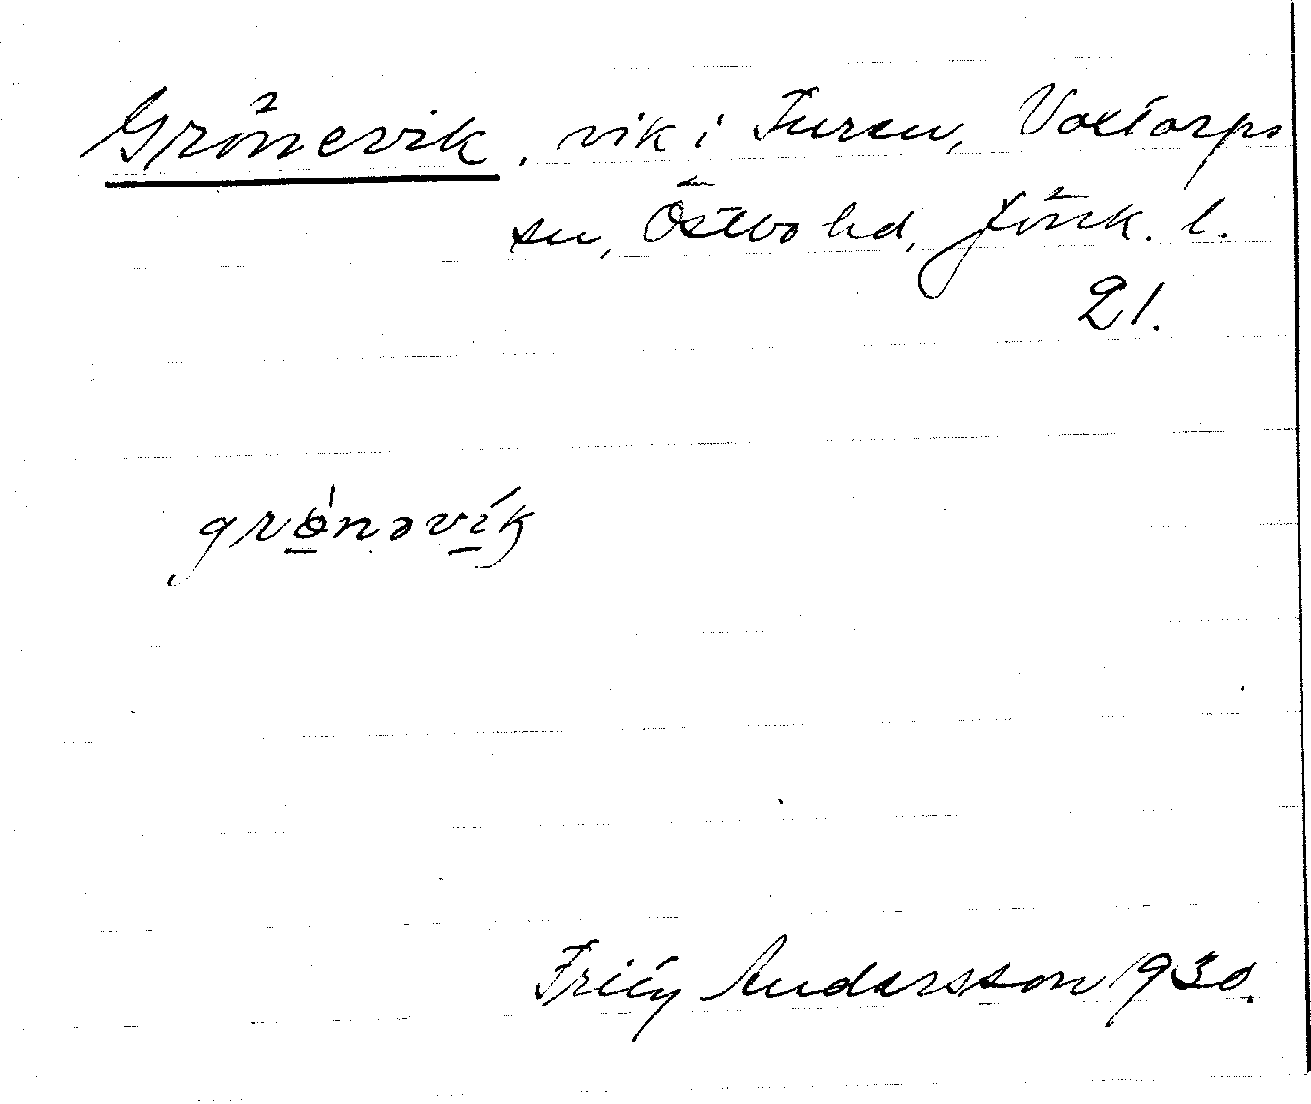 Grönevik, vik i Furen, Voxtorps
sn, Östbo hd, Jönk. l.
21.
grǿnəvik
Frity Andersson 1930.